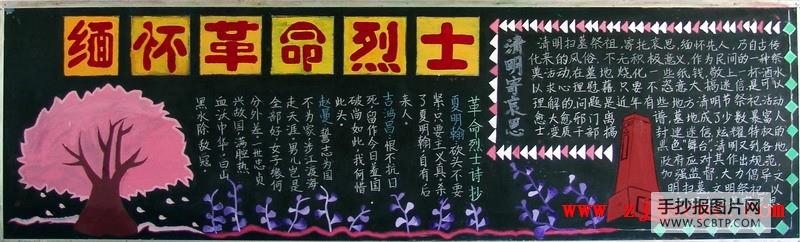 缅怀革命烈士
革命烈士诗抄
夏明翰 砍头不要
紧,只要主义真.杀
了夏明翰,自有后
来人.
吉鸿昌 恨不抗日
死,留作今日羞.国
破尚如此,我何惜
此头.
赵曼 誓志为国
不为家,涉江渡海
走天涯.男儿岂是
全都好,女子缘何
分外差.一世忠贞
兴故国,满腔热
血沃中华.白山
黑水除敌寇.
清明寄哀思
清明扫墓祭祖,寄托哀思,缅怀先人,乃自古传
化来的风俗,不无积极意义.作为民间的一种祭
奠活动,在墓地,烧化一些纸钱,敬上一杯酒水
以求心理慰藉,只要不恣意大搞迷信,是可以
理解的.问题是近年有些地方清明节祭祀活动
愈大愈邪门离谱,墓地成了少数暴富人
士,变质干部搞封建迷信,炫耀特权的
黑色"舞台".清明
政府应对其作出规范,
加强监督,大力倡导文
明扫墓,文明祭祀,以
手抄报图片网
WWW.SCBTP.COM